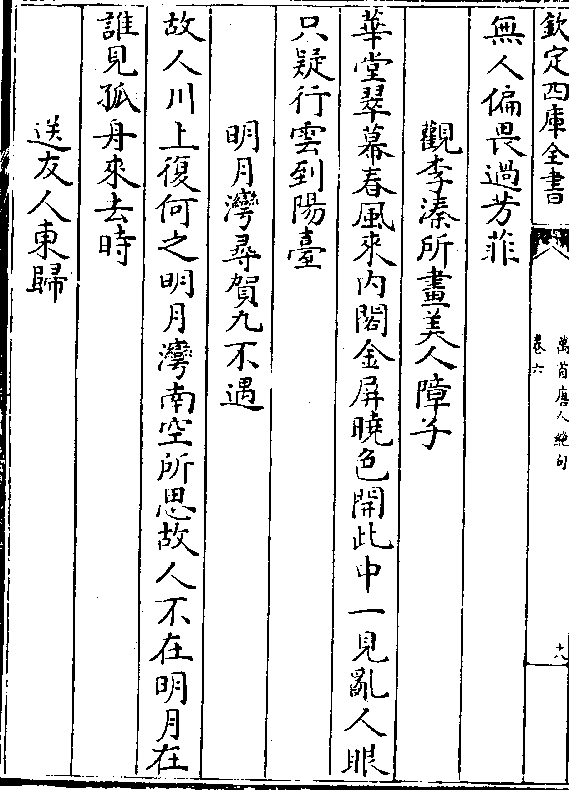 欽定四庫全書
萬首唐人絶句
卷六
十九
無人偏畏過芳菲
觀李湊所畫美人障子
華堂翠幕春風來内閣金屏曉色開此中一見亂人眼
只疑行雲到陽臺
明月灣尋賀九不遇
故人川上復何之明月灣南空所思故人不在明月在
誰見孤舟來去時
送友人東歸